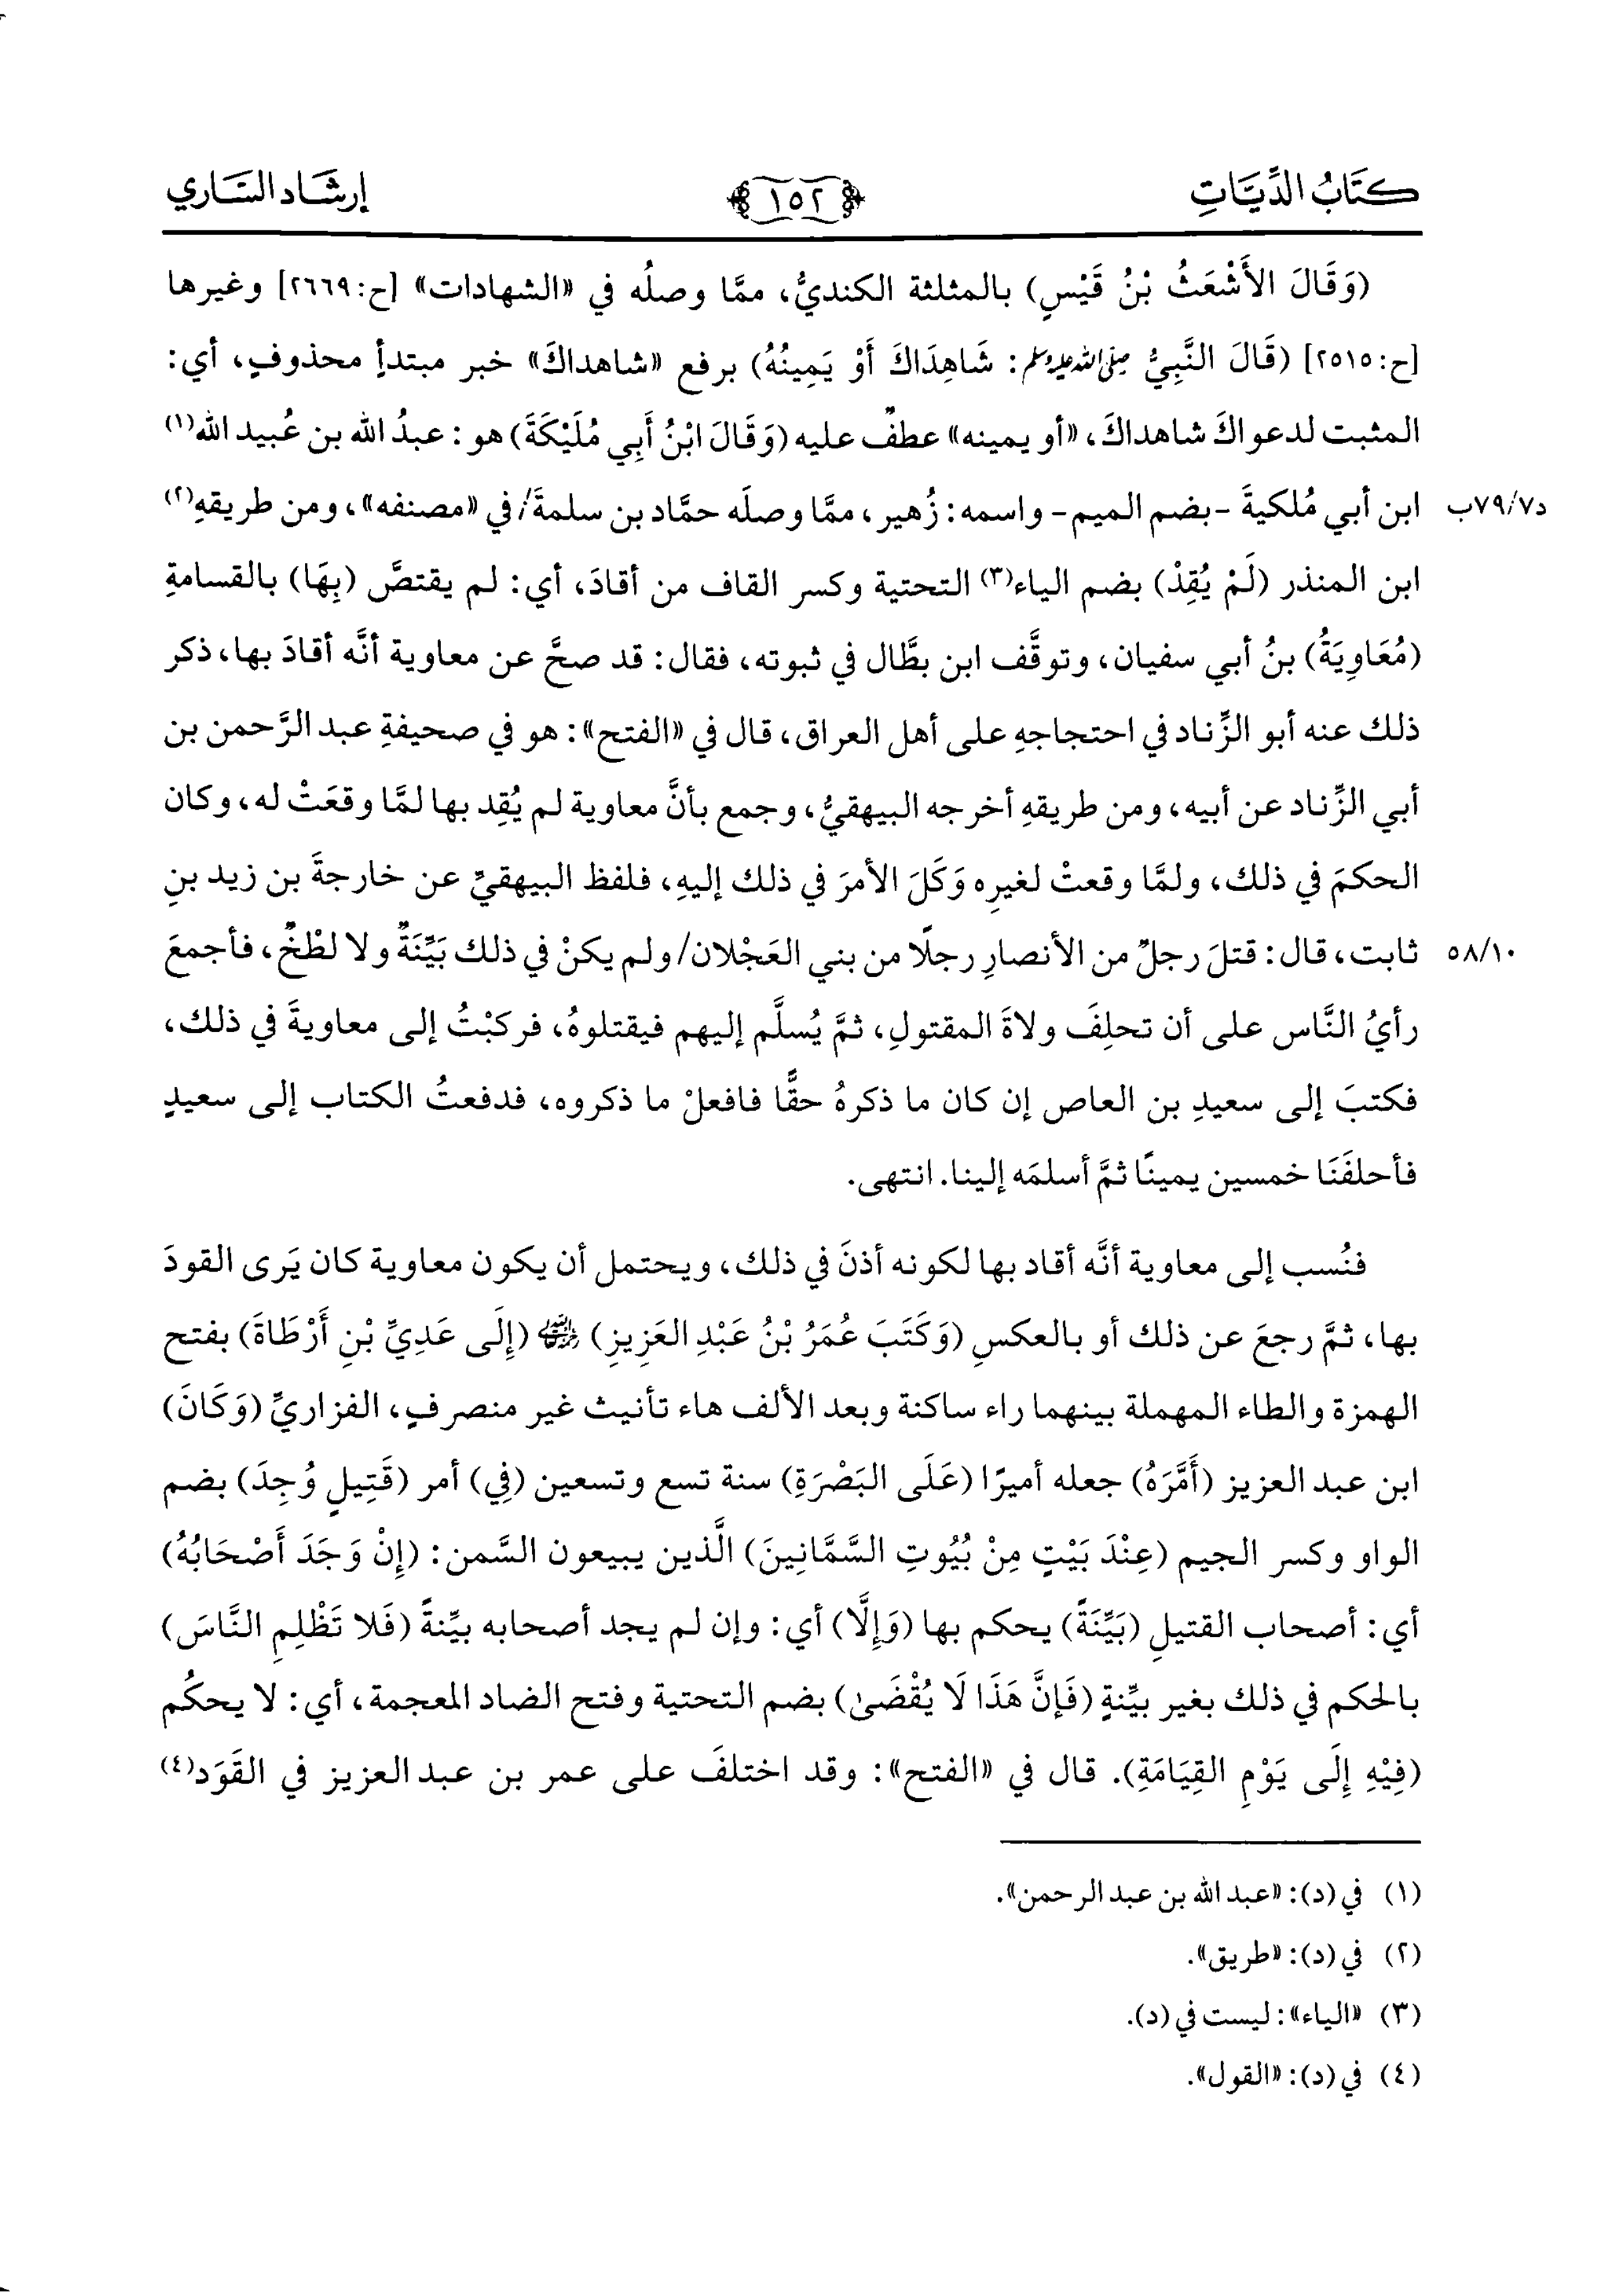 كتاب الديات
١٥٢
إرشاد الساري
(وَقَالَ الأَشْعَثُ بْنُ قَيْسٍ) بالمثلثة الكنديُّ، ممَّا وصلُه في «الشهادات» [ح:٢٦٦٩] وغيرها
[ح:٢٥١٥] (قَالَ النَّبِيُّ صلى الله عليه وسلم: شَاهِدَاكَ أَوْ يَمِينُهُ) برفع «شاهداكَ» خبر مبتدأٍ محذوفٍ، أي:
المثبت لدعواكَ شاهداكَ، «أو يمينه» عطفٌ عليه (وَقَالَ ابْنُ أَبِي مُلَيْكَةَ) هو: عبدُ الله بن عُبيد الله(١)
ابن أبي مُلكيةَ -بضم الميم- واسمه: زُهير، ممَّا وصلَه حمَّاد بن سلمةَ/ في «مصنفه»، ومن طريقهِ(٢)
د٧٩/٧ب
ابن المنذر (لَمْ يُقِدْ) بضم الياء(٣) التحتية وكسر القاف من أقادَ، أي: لم يقتصَّ (بِهَا) بالقسامةِ
(مُعَاوِيَةُ) بنُ أبي سفيان، وتوقَّف ابن بطَّال في ثبوته، فقال: قد صحَّ عن معاوية أنَّه أقادَ بها، ذكر
ذلك عنه أبو الزِّناد في احتجاجهِ على أهل العراق، قال في «الفتح»: هو في صحيفةِ عبد الرَّحمن بن
أبي الزِّناد عن أبيه، ومن طريقهِ أخرجه البيهقيُّ، وجمع بأنَّ معاوية لم يُقِد بها لمَّا وقعَتْ له، وكان
الحكمَ في ذلك، ولمَّا وقعتْ لغيرِه وَكَلَ الأمرَ في ذلك إليهِ، فلفظ البيهقيِّ عن خارجةَ بن زيد بنِ
ثابت، قال: قتلَ رجلٌ من الأنصارِ رجلًا من بني العَجْلان/ ولم يكنْ في ذلك بَيِّنَةٌ ولا لطْخٌ، فأجمعَ
٥٨/١٠
رأيُ النَّاس على أن تحلِفَ ولاةَ المقتولِ، ثمَّ يُسلَّم إليهم فيقتلوهُ، فركبْتُ إلى معاويةَ في ذلك،
فكتبَ إلى سعيدِ بن العاص إن كان ما ذكرهُ حقًّا فافعلْ ما ذكروه، فدفعتُ الكتاب إلى سعيدٍ
فأحلفَنَا خمسين يمينًا ثمَّ أسلمَه إلينا. انتهى.
فنُسب إلى معاوية أنَّه أقاد بها لكونه أذنَ في ذلك، ويحتمل أن يكون معاوية كان يَرى القودَ
بها، ثمَّ رجعَ عن ذلك أو بالعكسِ (وَكَتَبَ عُمَرُ بْنُ عَبْدِ العَزِيزِ) رضي الله عنه (إِلَى عَدِيِّ بْنِ أَرْطَاةَ) بفتح
الهمزة والطاء المهملة بينهما راء ساكنة وبعد الألف هاء تأنيث غير منصرفٍ، الفزاريِّ (وَكَانَ)
ابن عبد العزيز (أَمَّرَهُ) جعله أميرًا (عَلَى البَصْرَةِ) سنة تسع وتسعين (فِي) أمر (قَتِيلٍ وُجِدَ) بضم
الواو وكسر الجيم (عِنْدَ بَيْتٍ مِنْ بُيُوتِ السَّمَّانِينَ) الَّذين يبيعون السَّمن: (إِنْ وَجَدَ أَصْحَابُهُ)
أي: أصحاب القتيلِ (بَيِّنَةً) يحكم بها (وَإِلَّا) أي: وإن لم يجد أصحابه بيِّنةً (فَلا تَظْلِمِ النَّاسَ)
بالحكم في ذلك بغير بيِّنةٍ (فَإِنَّ هَذَا لَا يُقْضَىٰ) بضم التحتية وفتح الضاد المعجمة، أي: لا يحكُم
(فِيْهِ إِلَى يَوْمِ القِيَامَةِ). قال في «الفتح»: وقد اختلفَ على عمر بن عبد العزيز في القَوَد(٤)
(١) في (د): «عبد الله بن عبد الرحمن».
(٢) في (د): «طريق».
(٣) «الياء»: ليست في (د).
(٤) في (د): «القول».